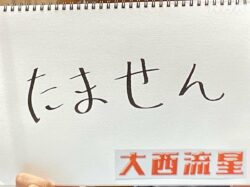 たません
大西流星